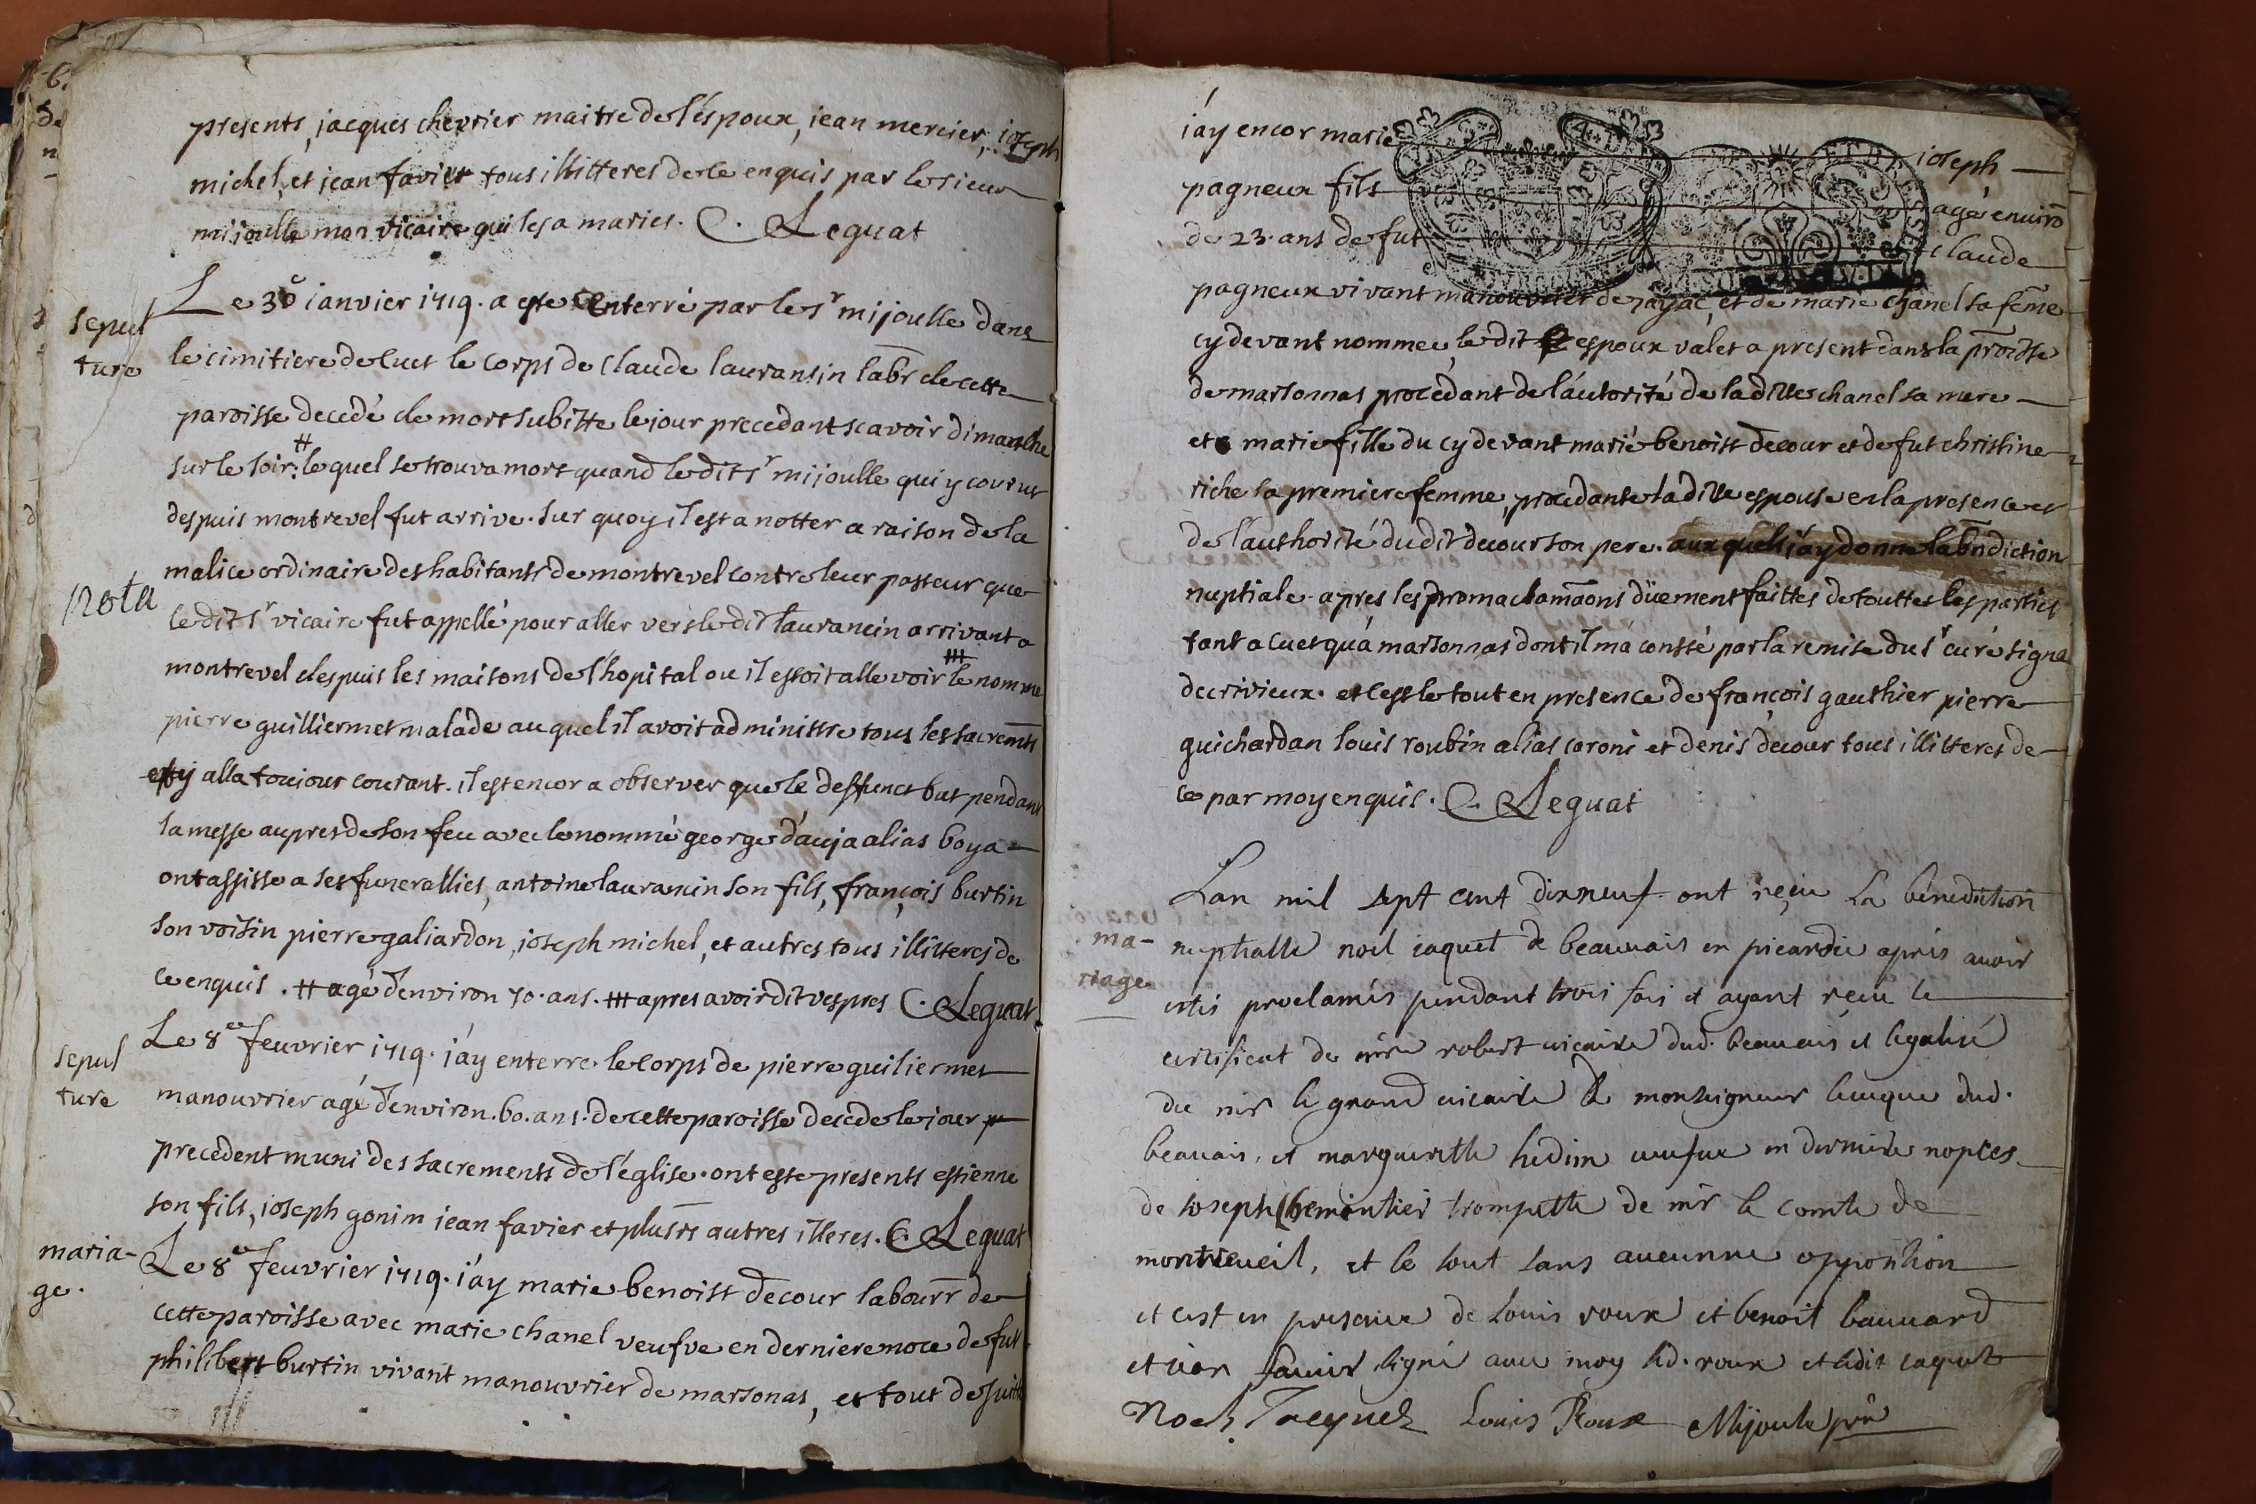 presents, jacques chevrier maitre de l'éspoux, jean mercier, ioseph
michel, et jean favier tous illitteres de ce enquis par le sieur
mijoulle mon vicaire qui les a maries. C. Leguat
sepul
ture
Le 30e ianvier 1719. a este enterré par le sr mijoulle dans
le cimitiere de cuet le corps de claude lauransin labr de cette
paroisse decedé de mort subitte le jour precedant scavoir dimanche
sur le soir # lequel se trouva mort quand le dit sr mijoulle qui y courut
despuis montrevel fut arrive. sur quoy il est a notter a raison de la
malice ordinaire des habitants de montrevel contre leur pasteur que
nota
le dit sr vicaire fut appellé pour aller vers le dit laurancin arrivant a
montrevel despuis les maisons de l'hopital ou il estoit alle voir ## le nomme
pierre guilliermet malade au quel il avoit administre tous les sacremts
et y alla toujour courant. il est encor a observer que le deffunct but pendant
la messe aupres de son feu avec le nommé george d'auja alias boya
ont assisse a ses funerallies, antoine laurancin son fils, françois burtin
son voisin pierre galiardon, ioseph michel, et autres tous illitteres de
ce enquis. # agé d'environ 70. ans. ## apres avoir dit vespres C. Leguat
sepul
ture
Le 8e feuvrier 1719. i'ay enterre le corps de pierre guiliermet
manouvrier agé d'environ. 60. ans. de cette paroisse decede le jour
precedent muni des sacrements de l'église. ont este presents estienne
son fils, ioseph gonim jean favier et plusrs autres illeres. C. Leguat
maria-
ge.
Le 8e feuvrier 1719. i'ay marie benoist decour labourr de
cette paroisse avec marie chanel veufve en derniere noce de fut
philibert burtin vivant manouvrier de marsonas, et tout de suitte
i'ay encor marie ioseph
pagneux fils agé enviro
de 23. ans de fut claude
pagneux vivant manouvrier de jayac, et de marie chanel sa feme
cy devant nommee, le dit espoux valet a present dans la proisse
de marsonnas procédant de l'áutorité de la ditte chanel sa mere
et marie fille du cy devant marié benoist decour et de fut christine
riche sa premiere femme, procedante la ditte espouse en la presence et
de l'authorité du dit decour son pere. aux quels i'áy donne la bndiction
nuptiale. apres les proclamaons düement faittes de touttes les parties
tant a cuet qu'á marsonnas dont il m'a conssé par la remise du sr curé signé
decrivieux. et c'est le tout en presence de françois gauthier pierre
guichardan louis roubin alias coroni et denis decour tous illitteres de
ce par moy enquis. C. Leguat
ma-
riage
Lan mil sept cent dixneuf ont reçeu la benediction
nuptialle noel iaquet de beauuais en picardie aprés auoir
estés proclamés pendant trois fois et ayant reçu le
certificat de mre robert uicaire dud. beauuais et legalisé
du mr le grand uicaire de monseigneur leuêque dud.
beauais, et marguerithe hedim ueufue en dernire nopces
de ioseph trompette de mr le comte de
montreueil, et le tout sans aucunne opposition
et cest en presance de louis roux et benoit bauuard
et ieor fauier signé auec moy led. roux et ledit iaquet
Noel Jacquet Louis Roux Mijoule ptre